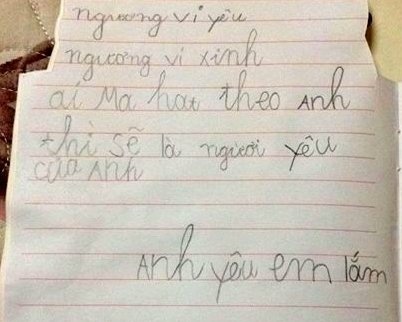 ngương vi yêu
ngương vi xinh
ai Ma hat theo Anh
thì sẽ là người yêu
của Anh
Anh yêu em lắm